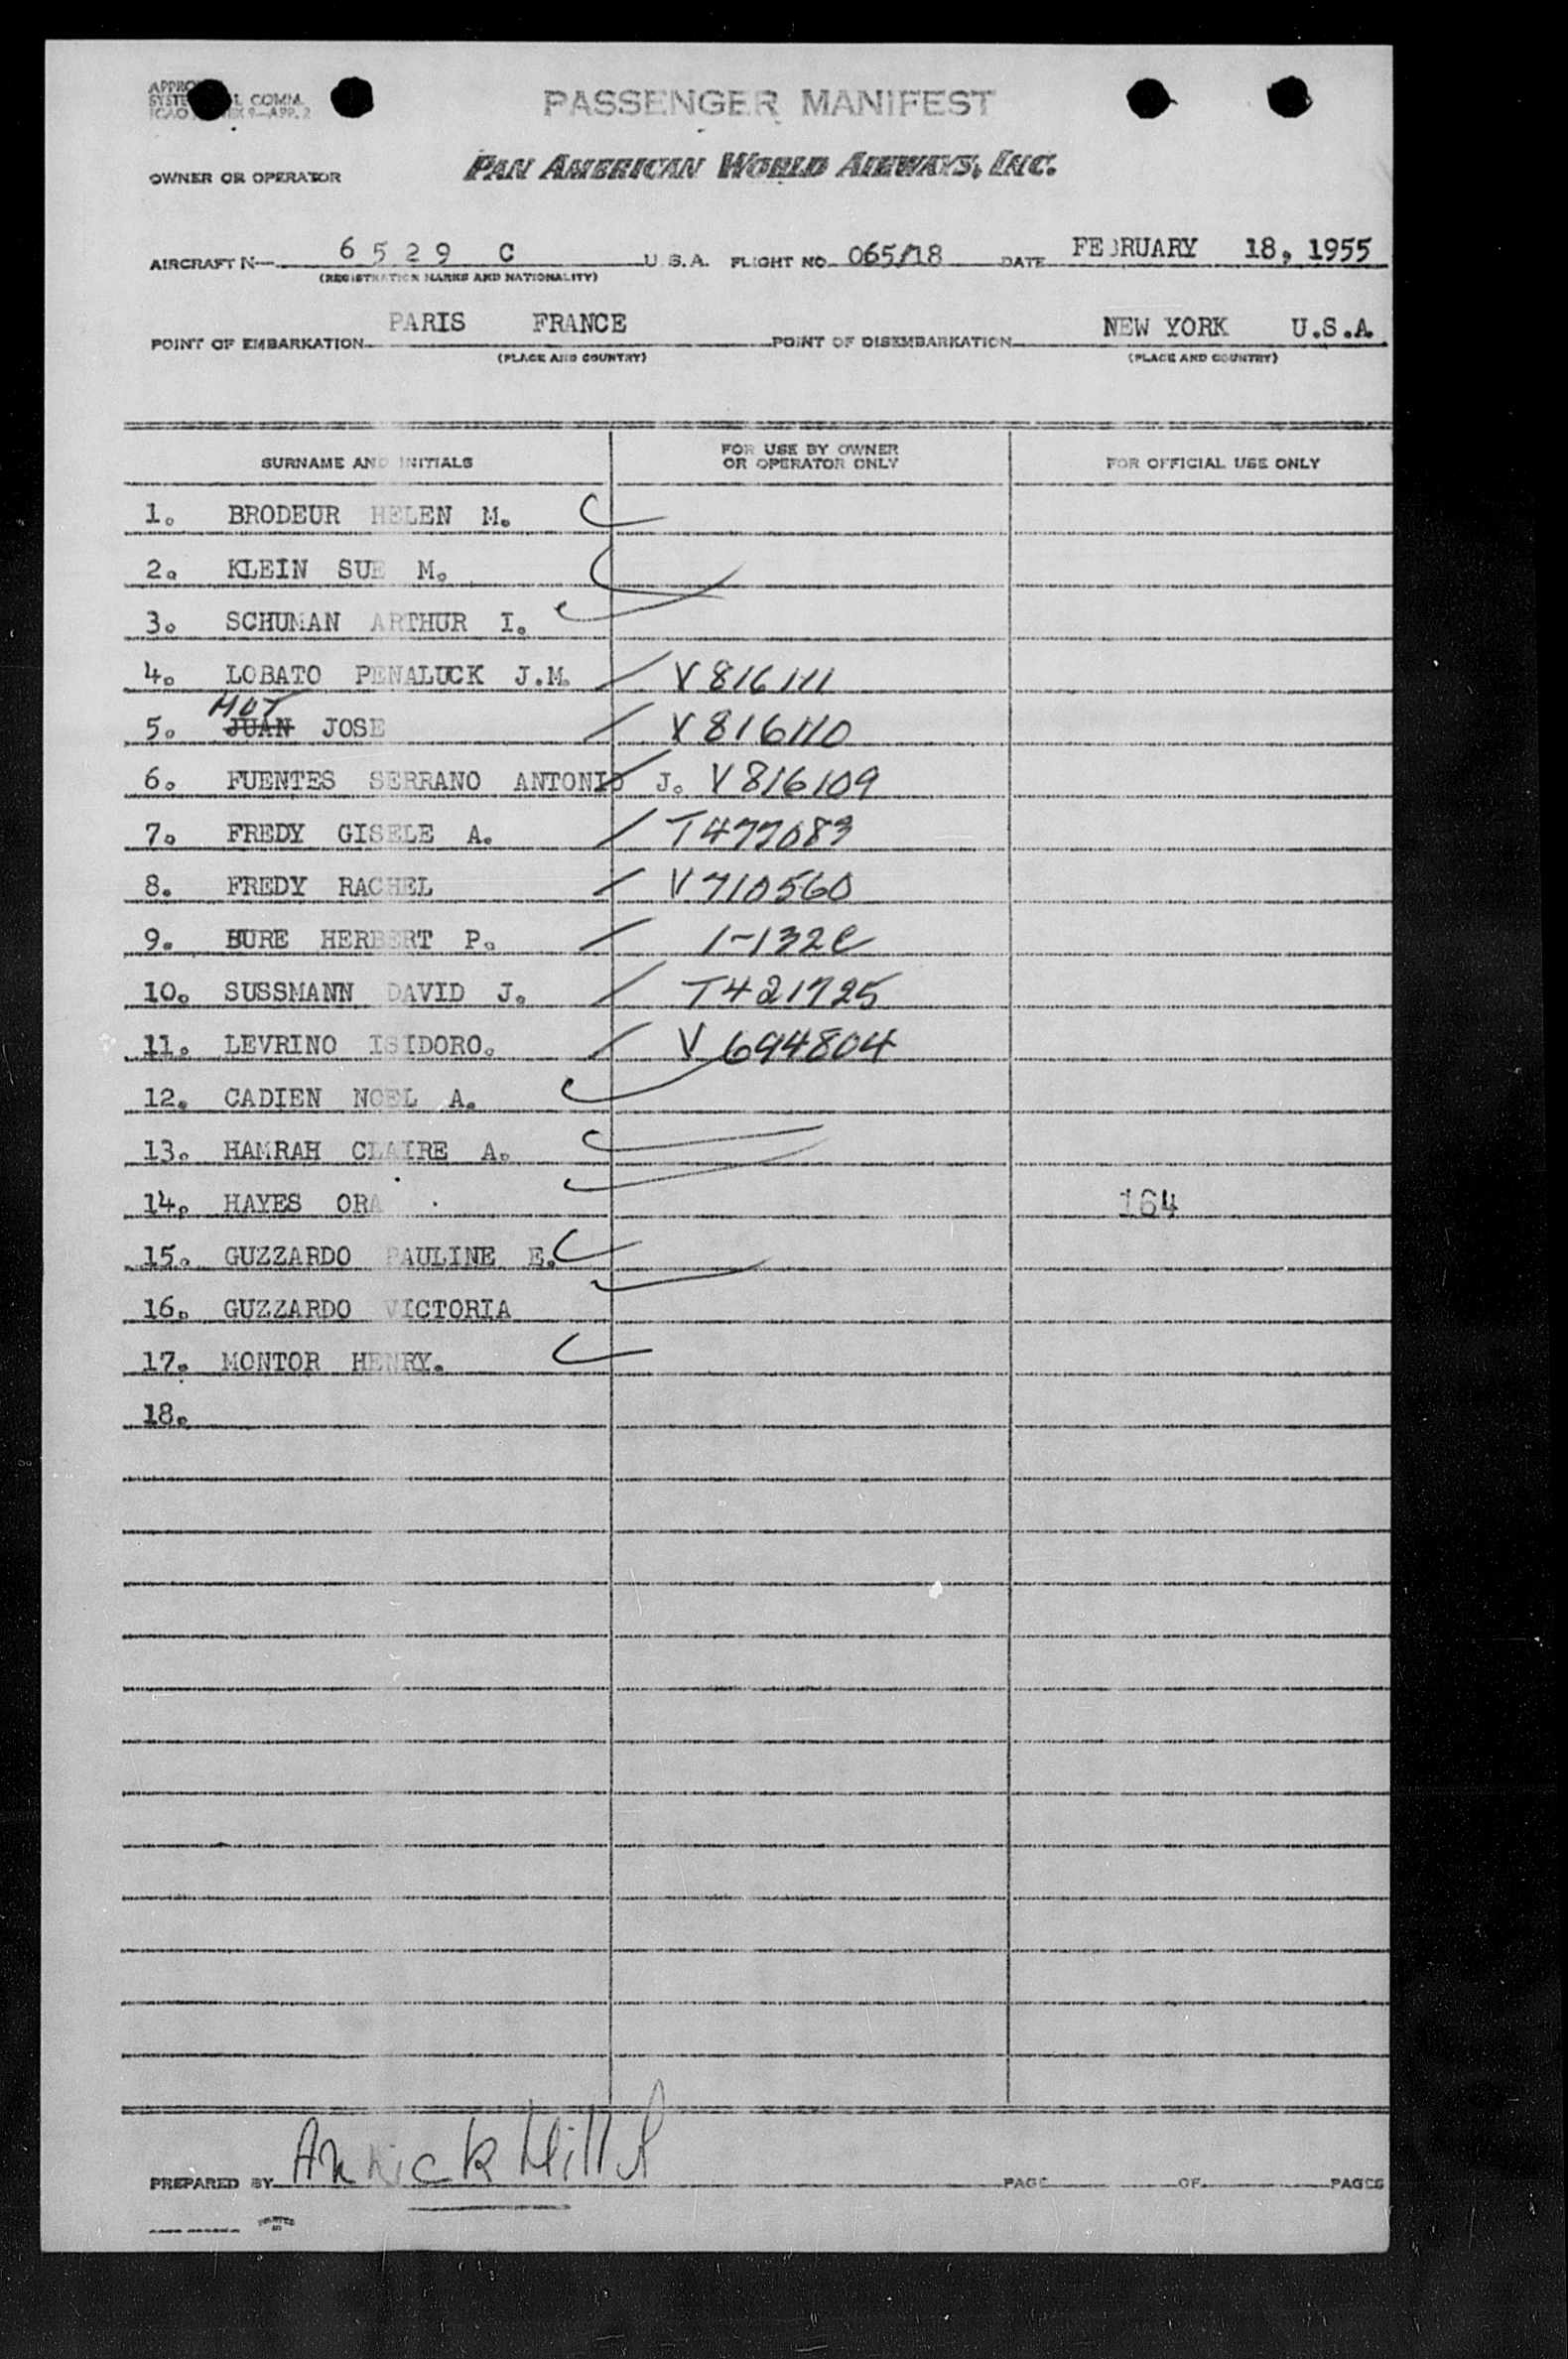 PASSENGER MANIFEST
L COMM.
OWNER OR OPERATOR PAN AMERICAN WORLD AIRWAYS, INC.
AIRCRAFT N— 6529 C U.S.A. FLIGHT NO. 065/18 DATE FEBRUARY 18, 1955
(REGISTRATION MARKS AND NATIONALITY)
POINT OF EMBARKATION PARIS FRANCE POINT OF DISEMBARKATION NEW YORK U.S.A.
(PLACE AND COUNTRY) (PLACE AND COUNTRY)
SURNAME AND INITIALS FOR USE BY OWNER OR OPERATOR ONLY FOR OFFICIAL USE ONLY
1. BRODEUR HELEN M.
2. KLEIN SUE M.
3. SCHUMAN ARTHUR I.
4. LOBATO PENALUCK J.M. V816111
5. JUAN JOSE V816110
6. FUENTES SERRANO ANTONIO J. V816109
7. FREDY GISELE A. T477083
8. FREDY RACHEL V710560
9. BURE HERBERT P. 1-132C
10. SUSSMANN DAVID J. T421725
11. LEVRINO ISIDORO. V694804
12. CADIEN NOEL A.
13. HAMRAH CLAIRE A.
14. HAYES ORA 164
15. GUZZARDO PAULINE E.
16. GUZZARDO VICTORIA
17. MONTOR HENRY.
18.
PREPARED BY Annick PAGE OF PAGES